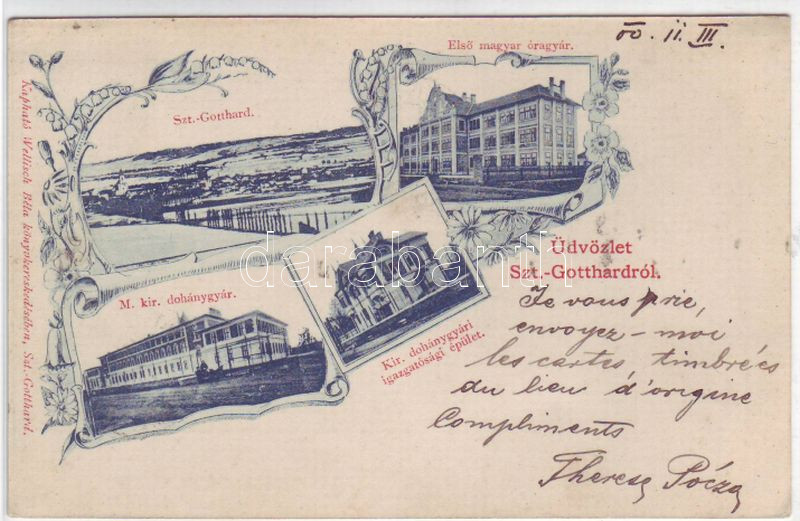 00. II. III.
Első magyar óragyár.
Szt.-Gotthard.
Kapható Wellisch Béla könyvkereskedésében, Szt. Gotthard.
darabanth
Üdvözlet
Szt.-Gotthardról.
M. kir. dohánygyár.
Kir. dohánygyári
igazgatósági épület.
Je vous prie,
envoyez-moi
les cartes, timbrées
du lieu d'origine
Compliments
Therese Pócza